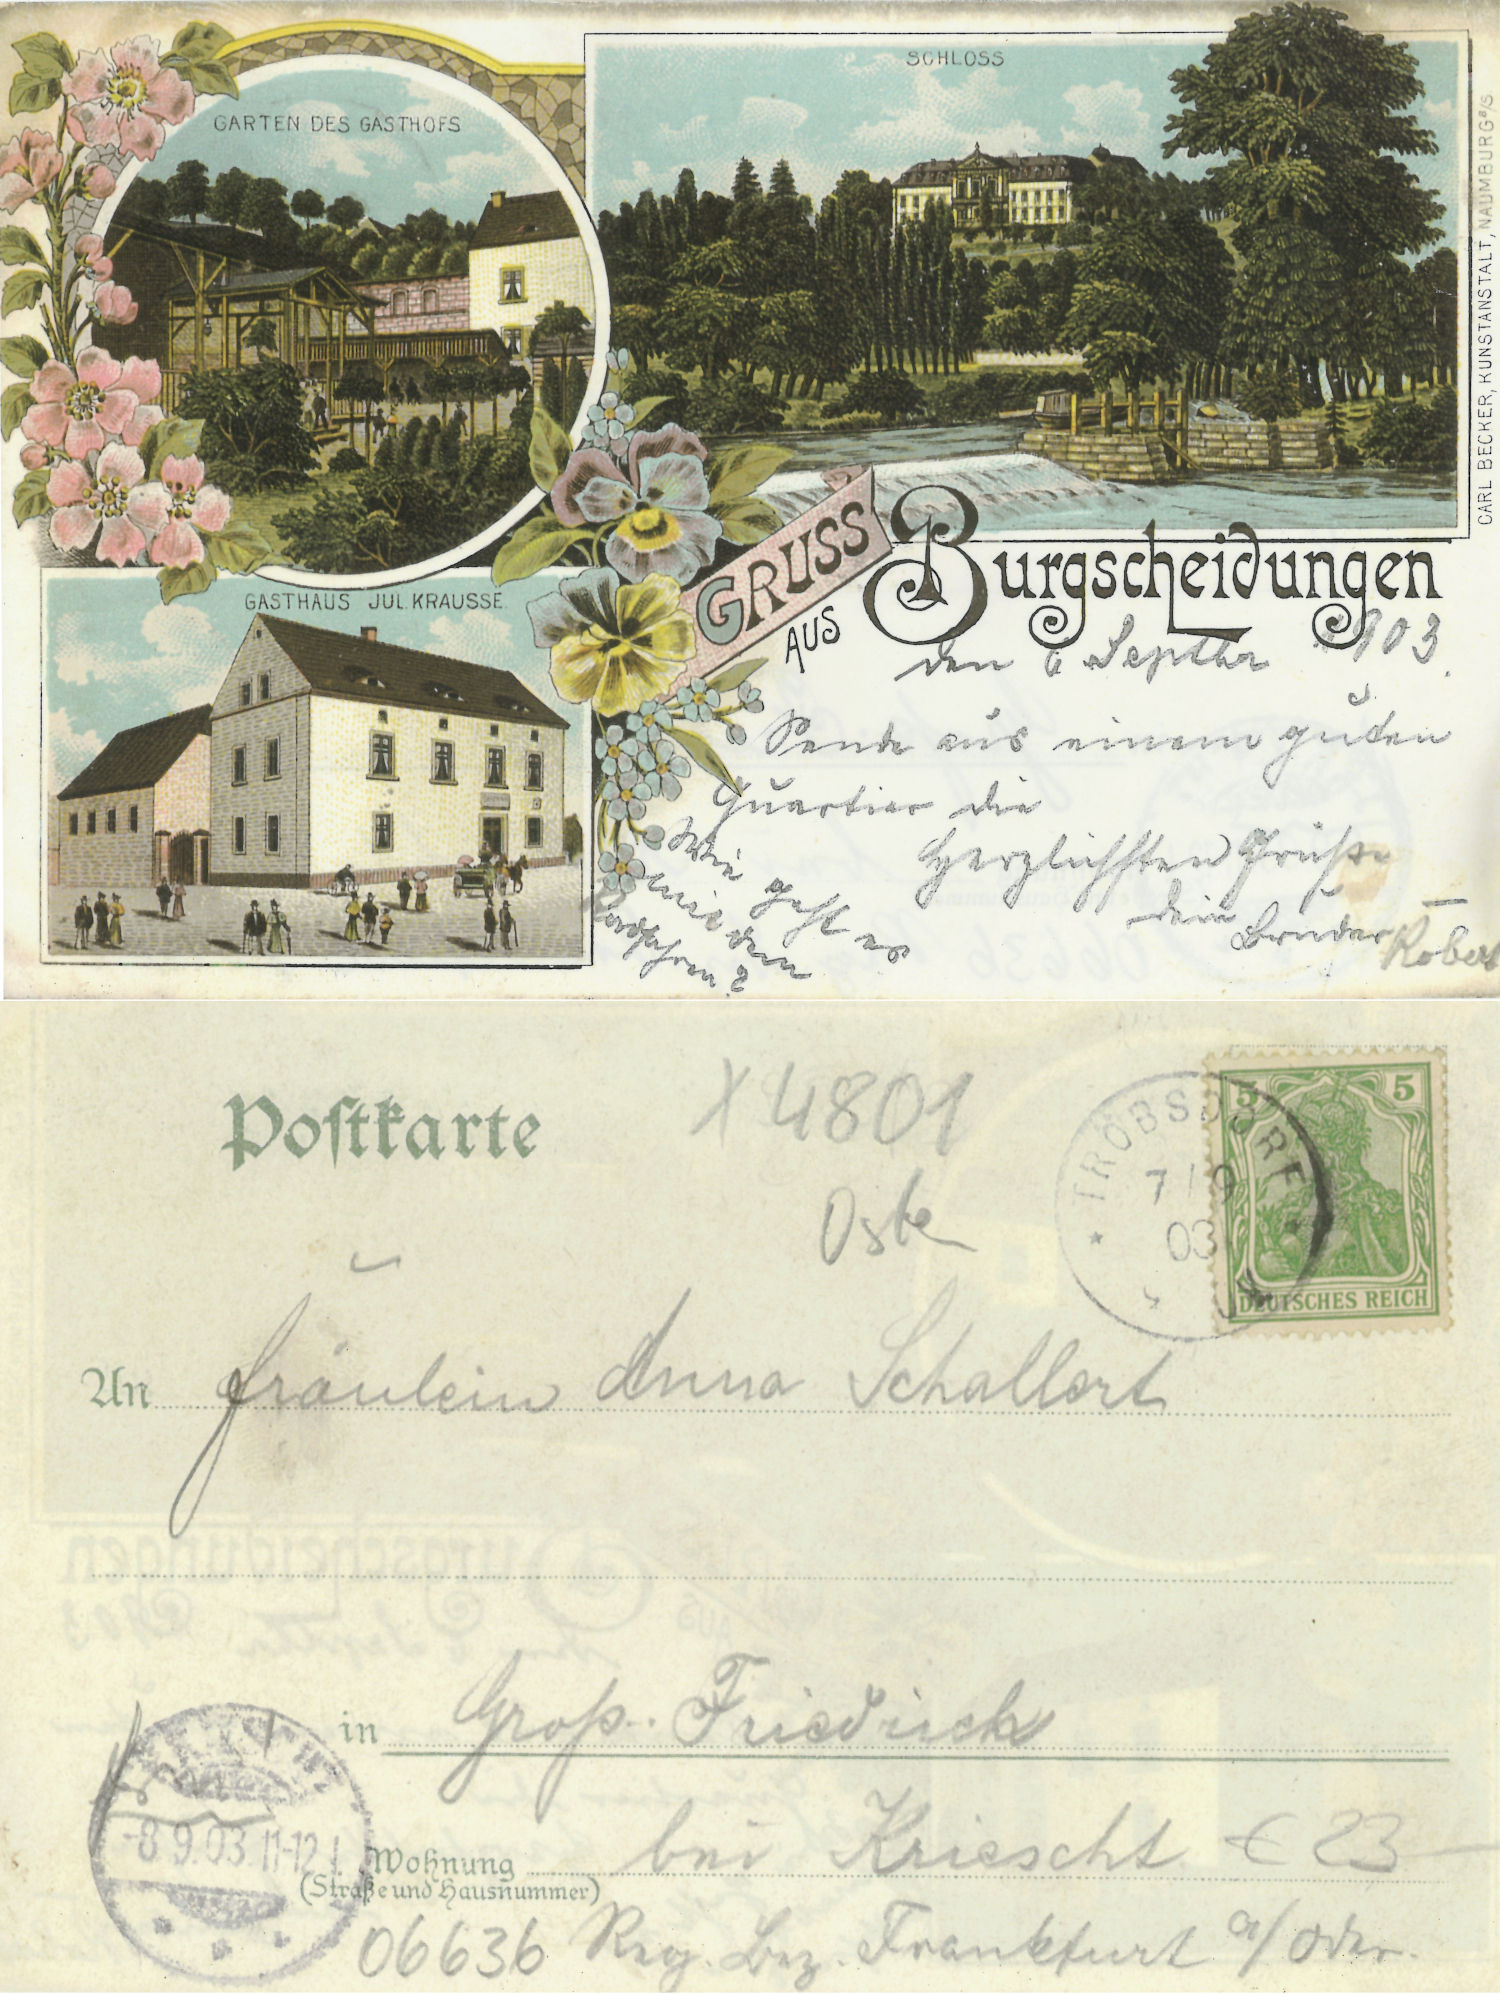 GARTEN DES GASTHOFS
SCHLOSS
CARL BECKER, KUNSTANSTALT, NAUMBURG a/S
GASTHAUS JUL. KRAUSSE.
GRUSS
AUS
Burgscheidungen
den 6 Septbr 1903.
Sende aus einem guten
Quartier die
Herzlichsten Grüße
dein Bruder Robert
Wie geht es
mit dem
Radfahren?
Postkarte
X 4801
Oste
TRÖBSDORF
7/9
03
5
5
DEUTSCHES REICH
An Fräulein Anna Schallert
in Groß-Friedrich
KRIESCHT
-8.9.03.11-12
Wohnung
(Straße und Hausnummer)
bei Kriescht € 23-
06636 Reg. Bez. Frankfurt a/Oder.